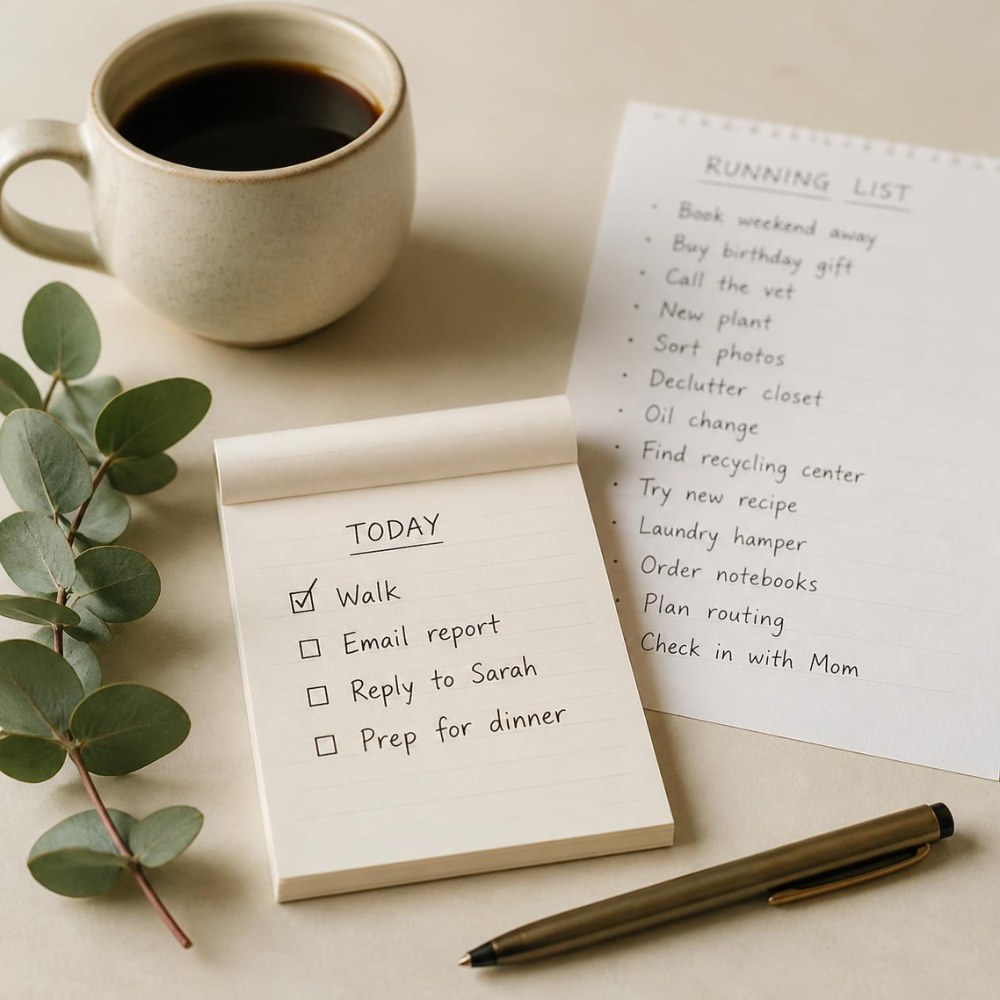 RUNNING LIST
Book weekend away
Buy birthday gift
Call the vet
New plant
Sort photos
Declutter closet
Oil change
Find recycling center
Try new recipe
Laundry hamper
Order notebooks
Plan routing
Check in with Mom
TODAY
Walk
Email report
Reply to Sarah
Prep for dinner